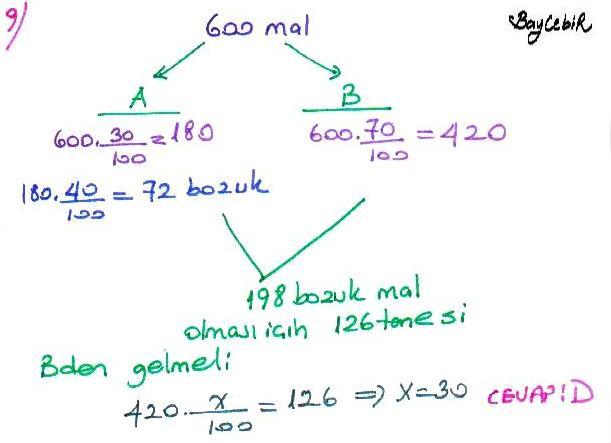 9)
600 mal
BayCebiR
A
B
600.30/100=180
600.70/100=420
180.40/100=72 bozuk
198 bozuk mal
olması için 126 tanesi
Bden gelmeli
420.x/100=126 ⇒ x=30 CEVAP:D